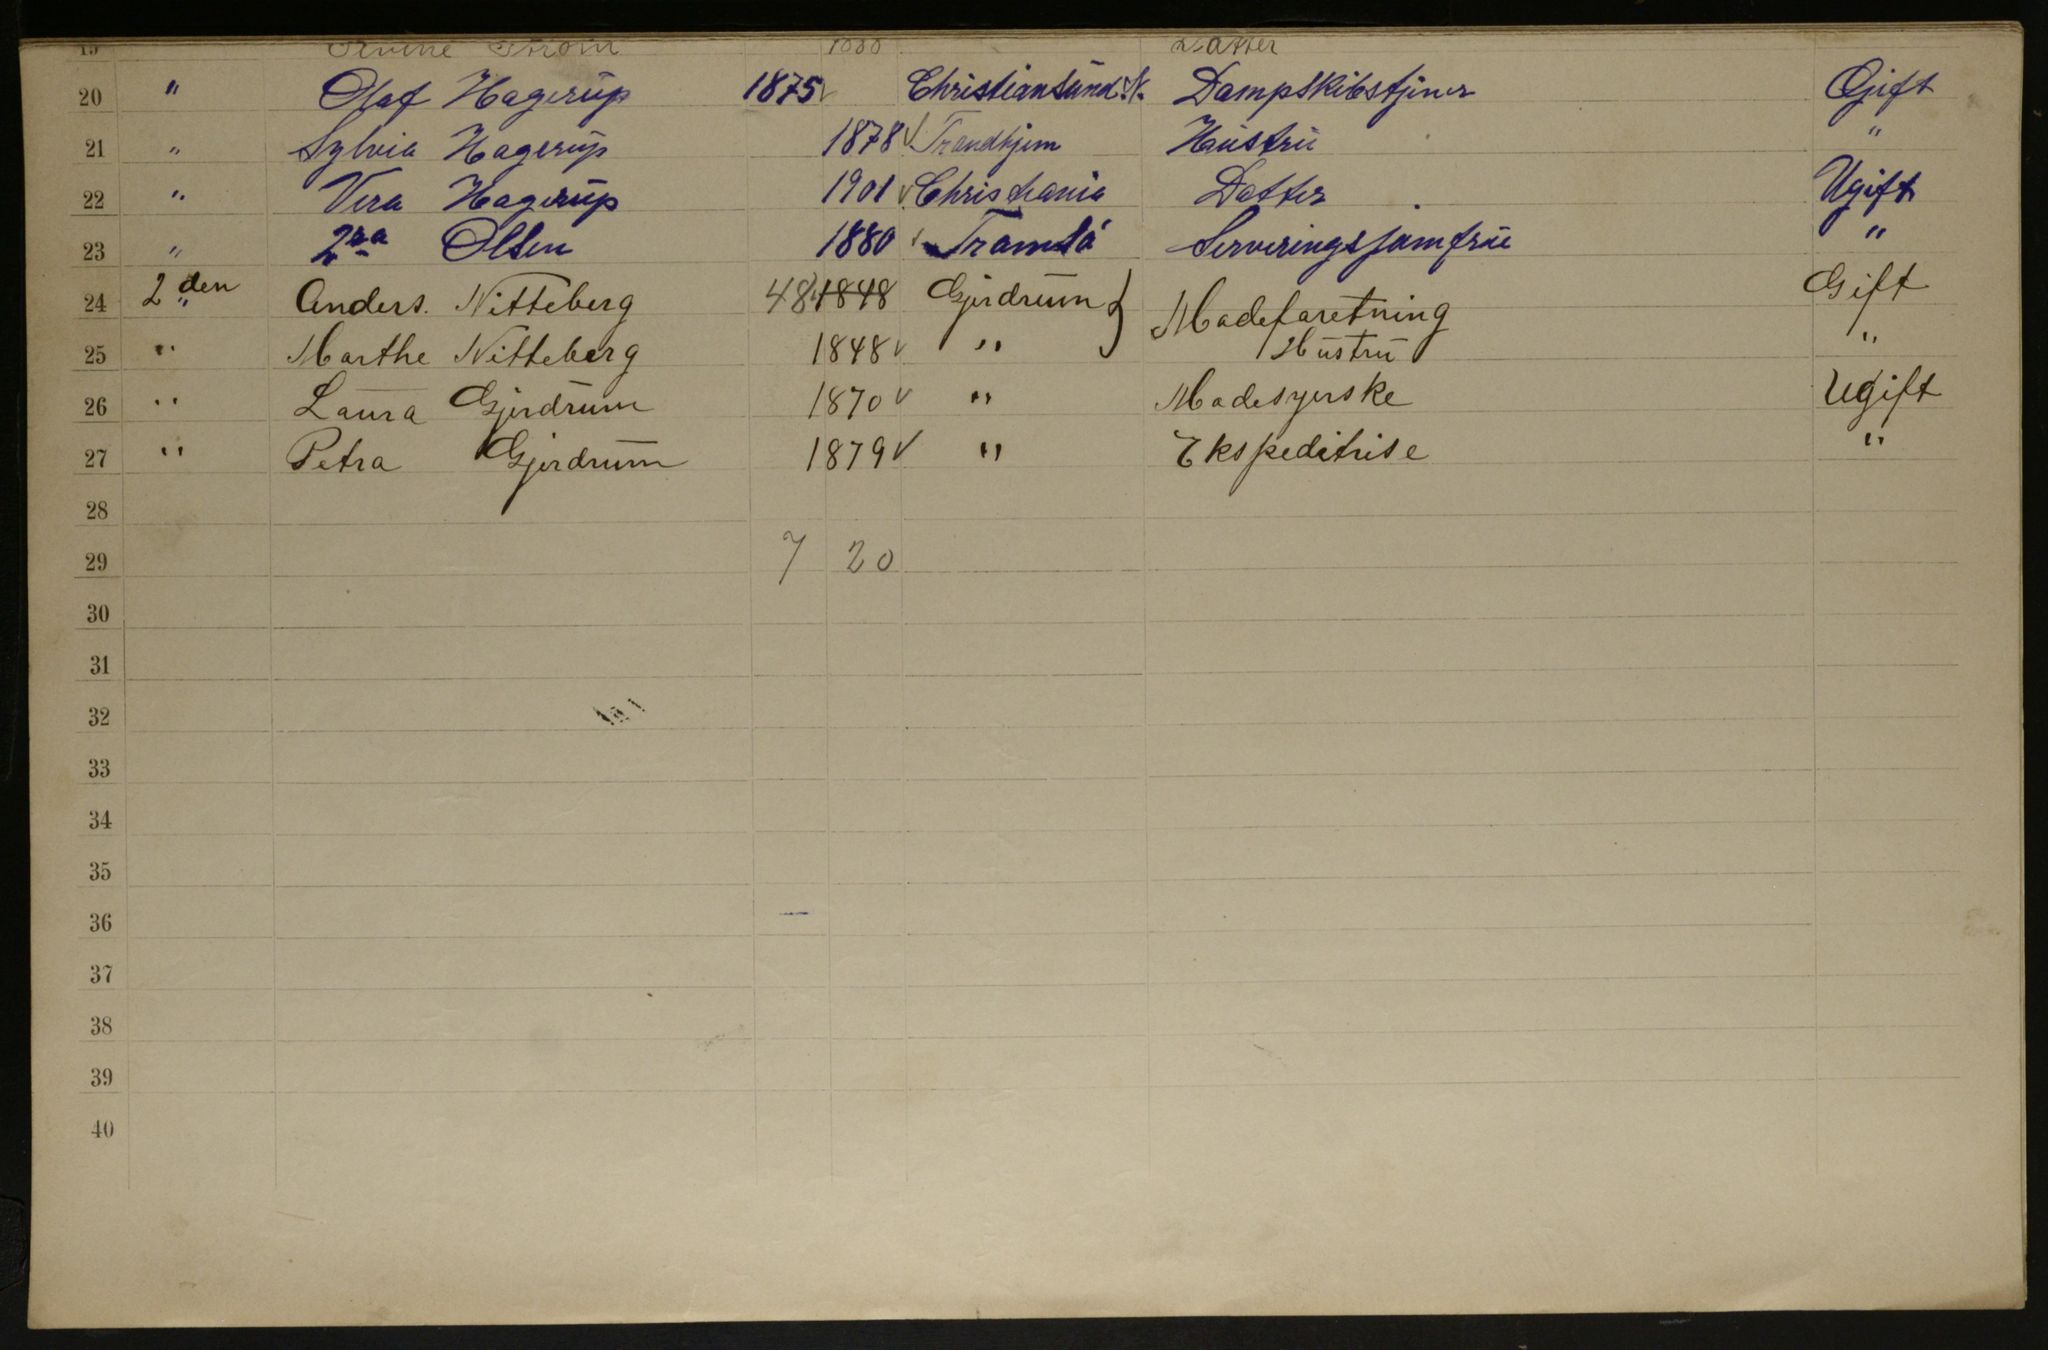 19 Strøm Datter
20 " Olaf Hagerup 1875 Christiansund N. Dampskibstjener Gift
21 " Sylvia Hagerup 1878 Trondhjem Hustru "
22 " Vera Hagerup 1901 Christiania Datter Ugift
23 " Olsen 1880 Tromsø Serveringsjomfrue "
24 2den " Anders. Nitteberg 48 1848 Gjerdrum } Modeforretning Gift
25 " Marthe Nitteberg 1848 " Hustru "
26 " Laura Gjerdrum 1870 " Modesyerske Ugift
27 " Petra Gjerdrum 1879 " Ekspeditrise "
28
29 7 20
30
31
32
33
34
35
36
37
38
39
40